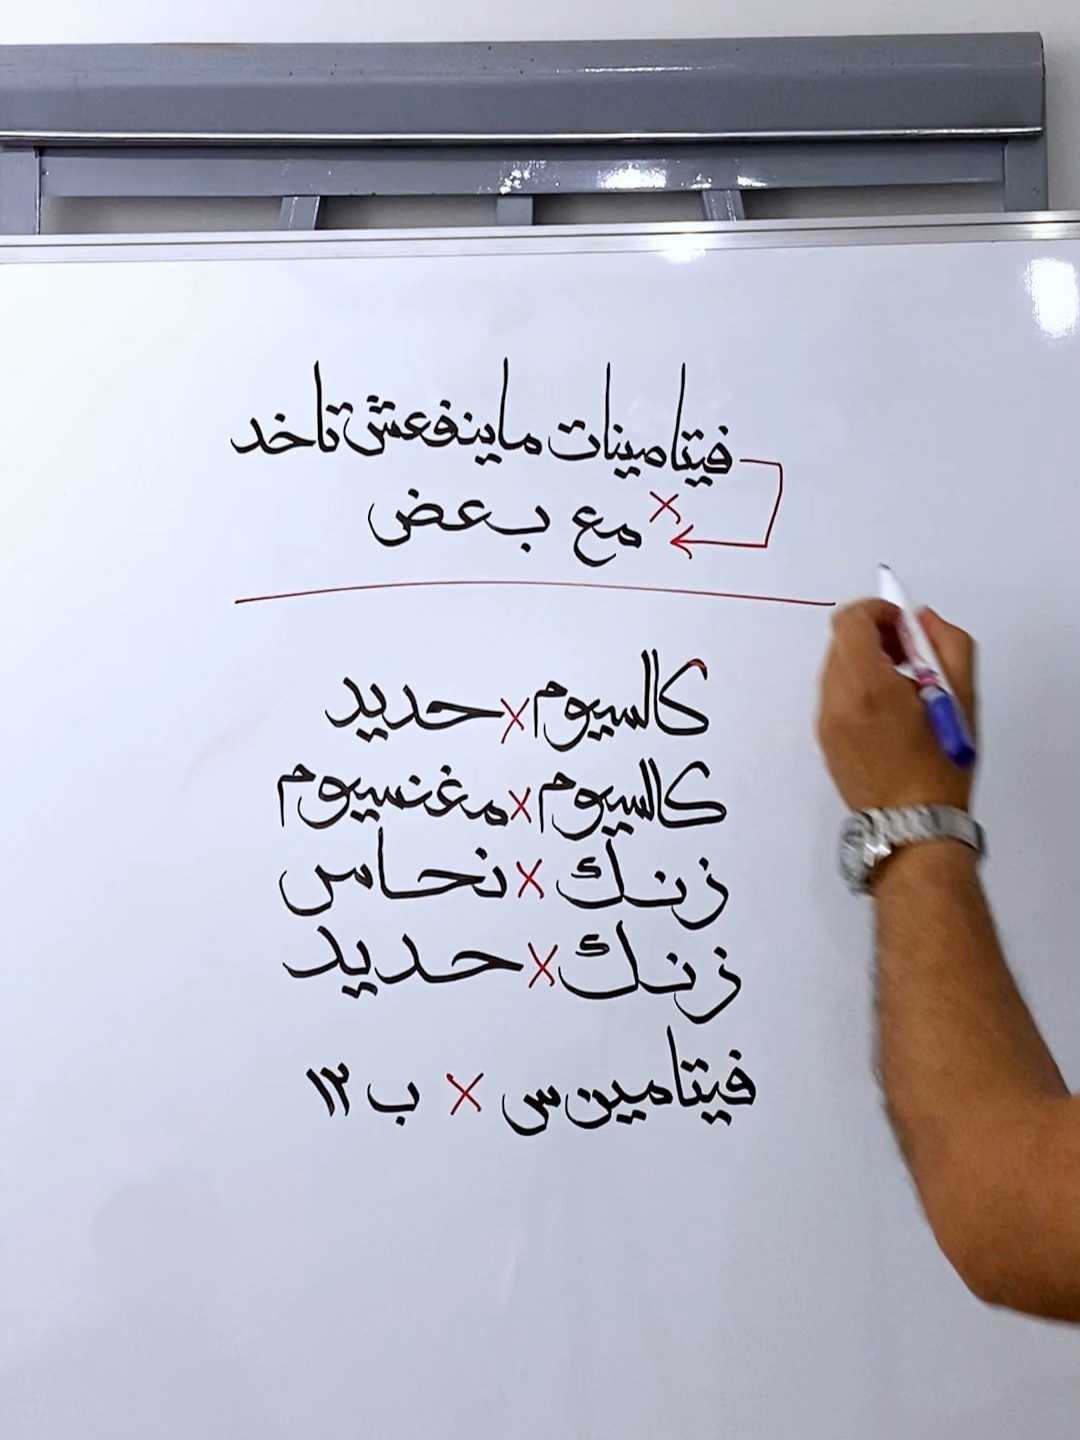 فيتامينات ماينفعش تاخد
مع بعض
كالسيوم × حديد
كالسيوم × مغنسيوم
زنك × نحاس
زنك × حديد
فيتامين س × ب ١٢